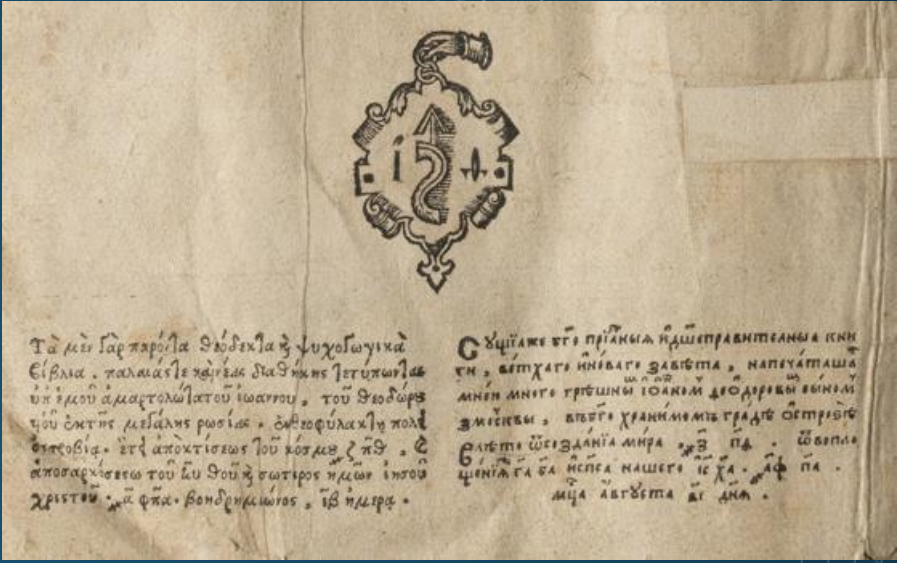 і ѳ
Τὰ μὲν γὰρ παρόντα θεόδεκτα ϗ ψυχοσωγικὰ
βίβλια, παλαιᾶς τε καὶ νέας διαθήκης τετυπωνται
ὑπ' ἐμοῦ ἁμαρτολωτατοῦ ἰωαννου, τοῦ θεοδώρου
τοῦ ἐκ τῆς μεγάλης ρωσίας, ἐν θεοφυλακτῃ πολει
ὀστροβίᾳ, ἔτει ἀπὸ κτίσεως τοῦ κόσμου ζ πθ,
ἀπὸ σαρκώσεως τοῦ κυ θεοῦ ϗ σωτῆρος ἡμῶν ἰησοῦ
χριστοῦ, ͵α φπα. βοηδρημιῶνος, ιβ ἡμερᾳ.
Сꙋщїѧже бг҃о прїѧ́ныѧ и҆дш҃еправителныѧ кни
ги, ве́тхаго и҆но́ваго завѣ́та, напеча́ташаⷭ҇
мно́ю много грѣ́шныⷨ і҆ѡа́ноⷨ ѳео́доровыⷨ сы́номъ
змо́сквы, въбг҃о храни́момъ гра́дѣ ѻ҆стро́зѣ
влѣ́то ѿсозда́нїѧ ми́ра, ҂з҃ п҃ѳ. ѿвопло
ще́нїѧ гд҃а бг҃а и҆сп҃са нашего і҆с҃ х҃а. ҂а҃ф п҃а.
мц҃а а҆́вгꙋста в҃і дн҃ѧ.